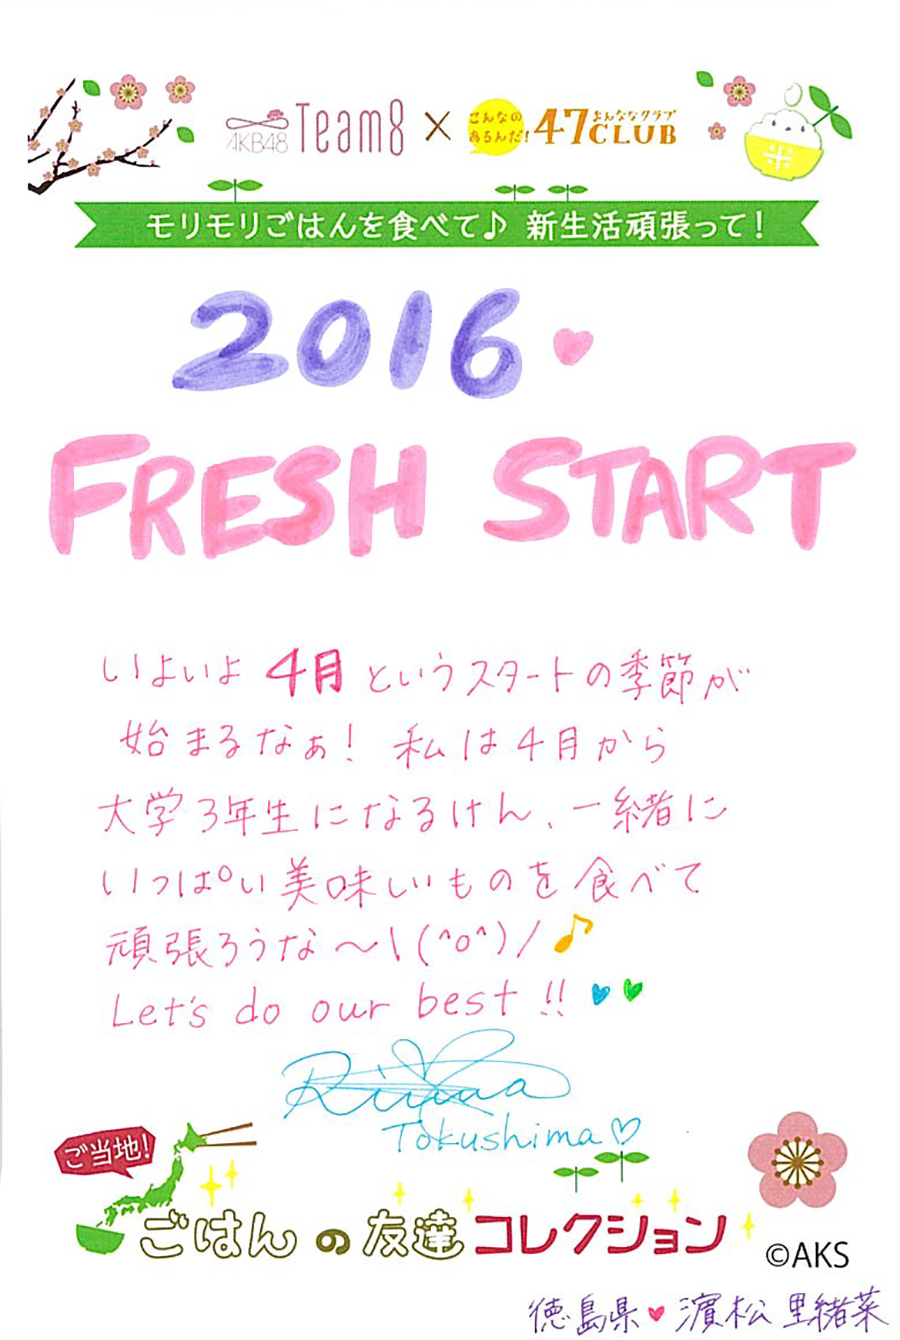 AKB48 Team8 × こんなのあるんだ! 47CLUB よんななクラブ
米
モリモリごはんを食べて♪ 新生活頑張って!
2016
FRESH START
いよいよ 4月 というスタートの季節が
始まるなぁ! 私は4月から
大学3年生になるけん、一緒に
いっぱい美味しいものを食べて
頑張ろうな〜\(^o^)/♪
Let's do our best!!
Riona
Tokushima♡
ご当地!
ごはんの友達コレクション
©AKS
徳島県♥濵松里緒菜